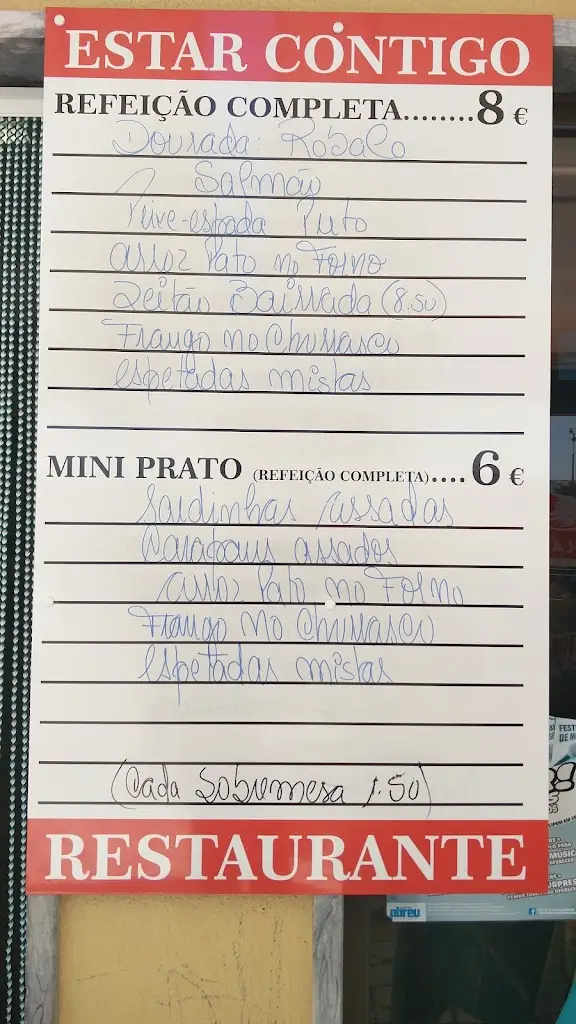 ESTAR CONTIGO
REFEIÇÃO COMPLETA........8 €
Dourada: Robalo
Salmão
Peixe-espada Preto
arroz Pato no Forno
Leitão Bairrada (8.50)
Frango no Churrasco
espetadas mistas
MINI PRATO (REFEIÇÃO COMPLETA)....6 €
Sardinhas Assadas
Carapaus assados
arroz Pato no Forno
Frango no Churrasco
espetadas mistas
(Cada Sobremesa 1.50)
RESTAURANTE
abreu